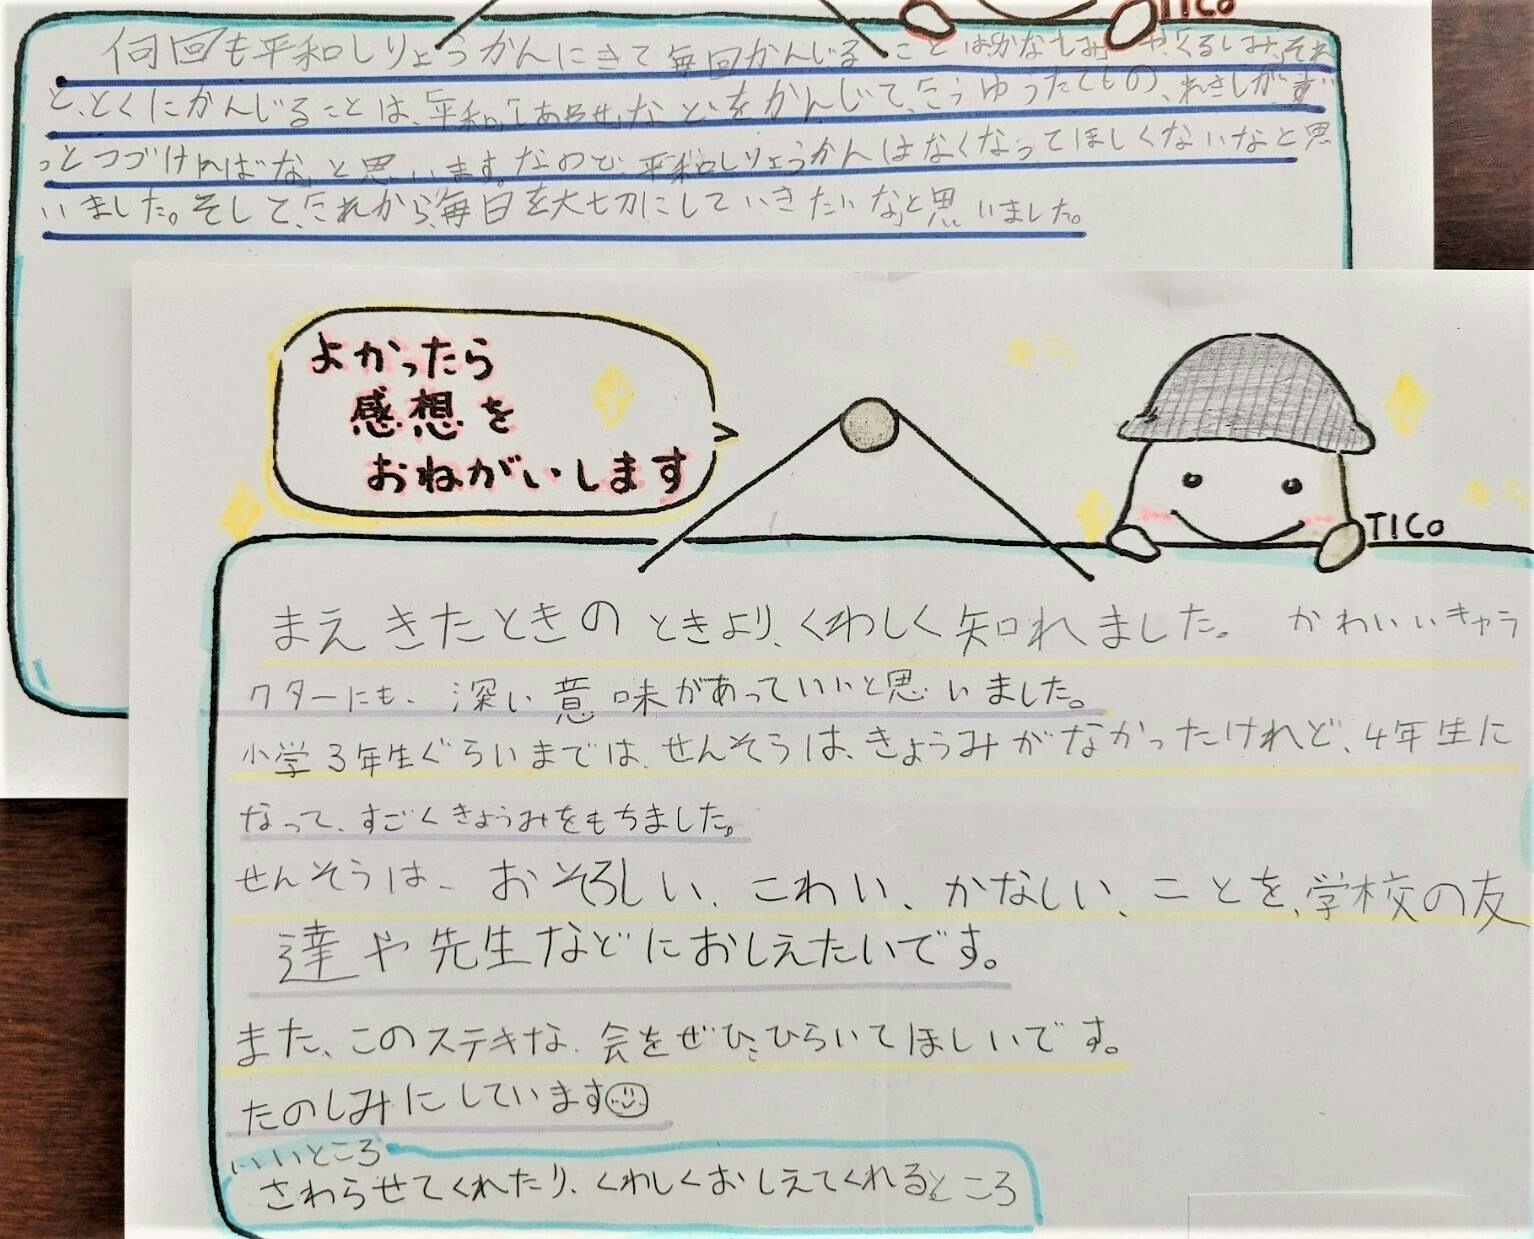 TICo
何回も平和しりょうかんにきて毎回かんじることはかなしみや、くるしみ、それ
と、とくにかんじることは、平和、しあわせ、などをかんじて、こうゆうたてもの、れきしがず
っとつづければな、と思います。なので、平和しりょうかんはなくなってほしくないなと思
いました。そして、これから、毎日を大切にしていきたいなと思いました。
よかったら
感想を
おねがいします
キラ
キラ
TICo
まえきたときのときより、くわしく知れました。かわいいキャラ
クターにも、深い意味があっていいと思いました。
小学3年生ぐらいまでは、せんそうは、きょうみがなかったけれど、4年生に
なって、すごくきょうみをもちました。
せんそうは、おそろしい、こわい、かなしい、ことを、学校の友
達や先生などにおしえたいです。
また、このステキな、会をぜひ、ひらいてほしいです。
たのしみにしています
いいところ
さわらせてくれたり、くわしくおしえてくれるところ